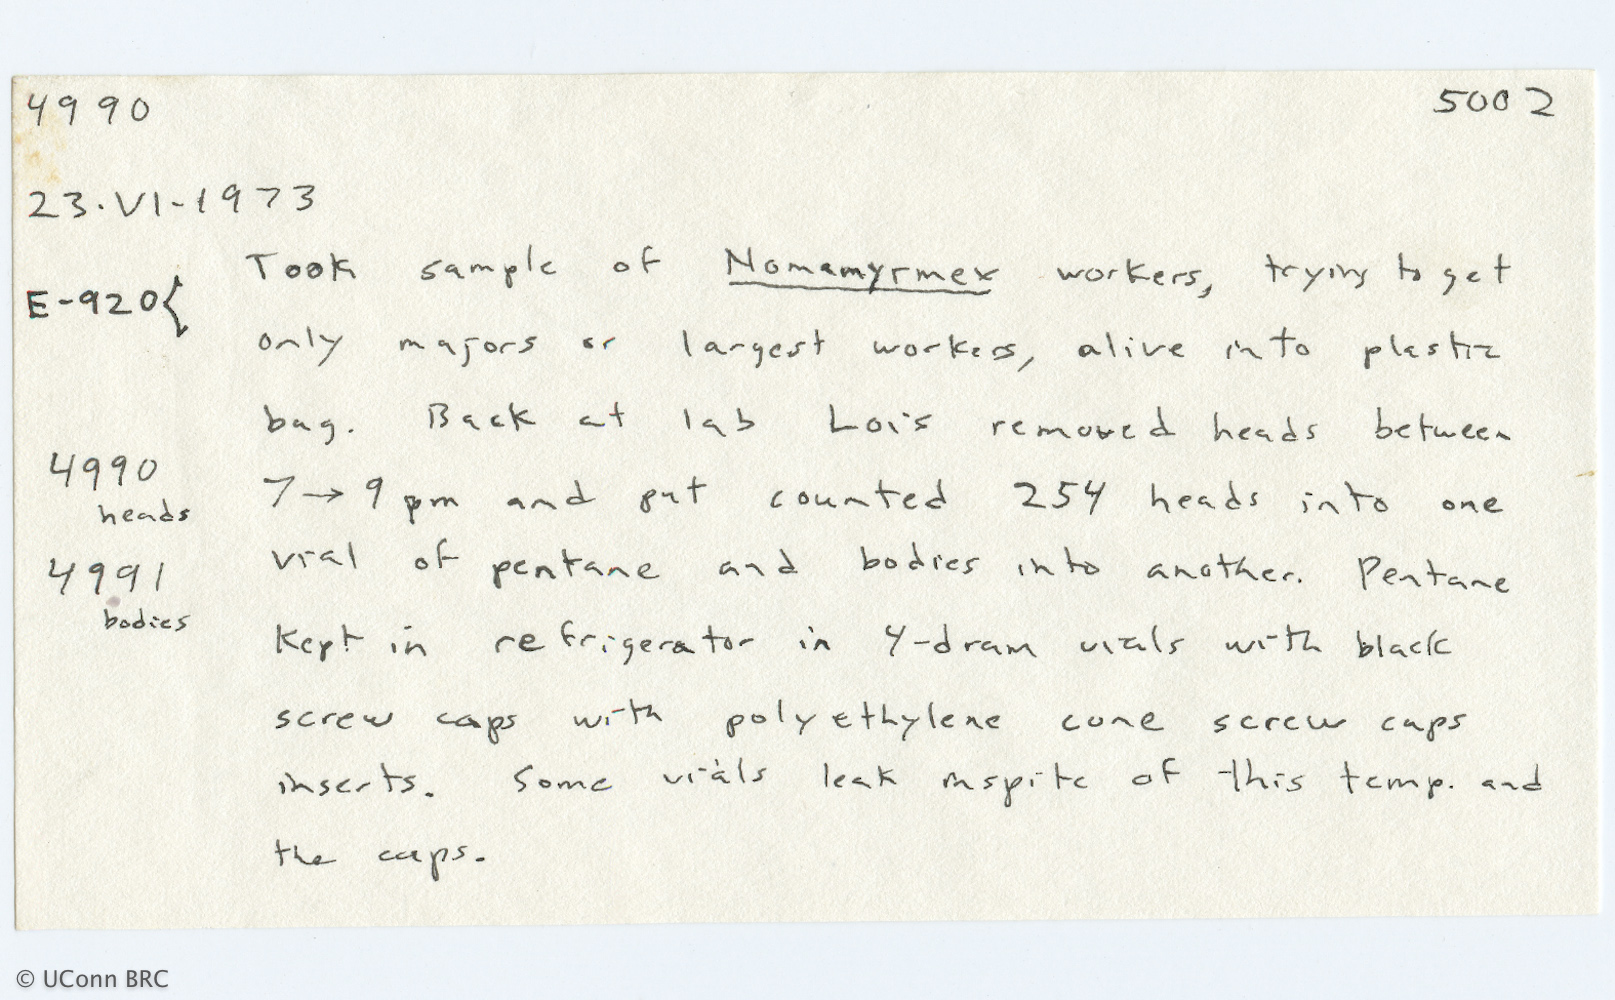 4990 5002
23·VI-1973
Took sample of Nomamyrmex workers, trying to get
E-920{
only majors or largest workers, alive into plastic
bag. Back at lab Lois removed heads between
4990
7→9 pm and put counted 254 heads into one
heads
vial of pentane and bodies into another. Pentane
4991
bodies
Kept in refrigerator in 4-dram vials with black
screw caps with polyethylene cone screw caps
inserts. Some vials leak inspite of this temp. and
the caps.
© UConn BRC